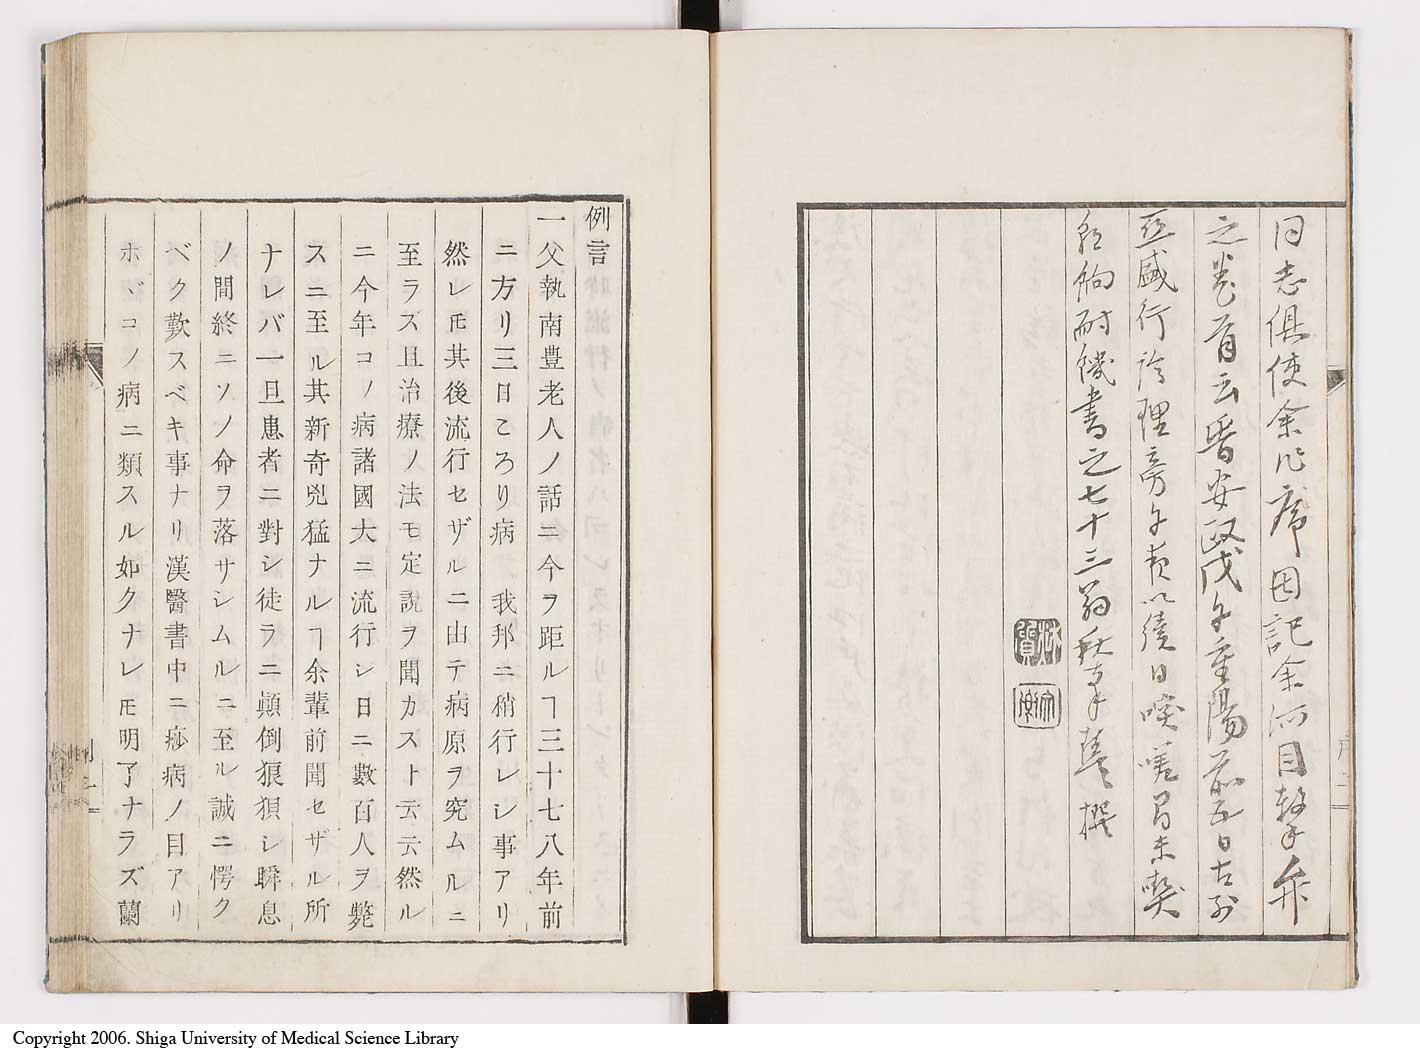 同志俱使余作序因記余所目撃弁
之巻首云旹安政戊午重陽前五日古列
亟盛行診理旁午夜以續日喫嗟曷未喫
飢飽耐饑書之七十三翁秋撰
例言
一父執南豊老人ノ話ニ今ヲ距ルヿ三十七八年前
ニ方リ三日ころり病 我邦ニ稍行レシ事アリ
然レ𪜈其後流行セザルニ由テ病原ヲ究ムルニ
至ラズ且治療ノ法モ定説ヲ聞カズト云云然ル
ニ今年コノ病諸國大ニ流行シ日ニ數百人ヲ斃
スニ至ル其新奇兇猛ナルヿ余輩前聞セザル所
ナレバ一旦患者ニ對シ徒ラニ顚倒狼狽シ瞬息
ノ間終ニソノ命ヲ落サシムルニ至ル誠ニ愕ク
ベク歎スベキ事ナリ漢醫書中ニ痧病ノ目アリ
ホヾコノ病ニ類スル如クナレ𪜈明了ナラズ蘭
Copyright 2006. Shiga University of Medical Science Library